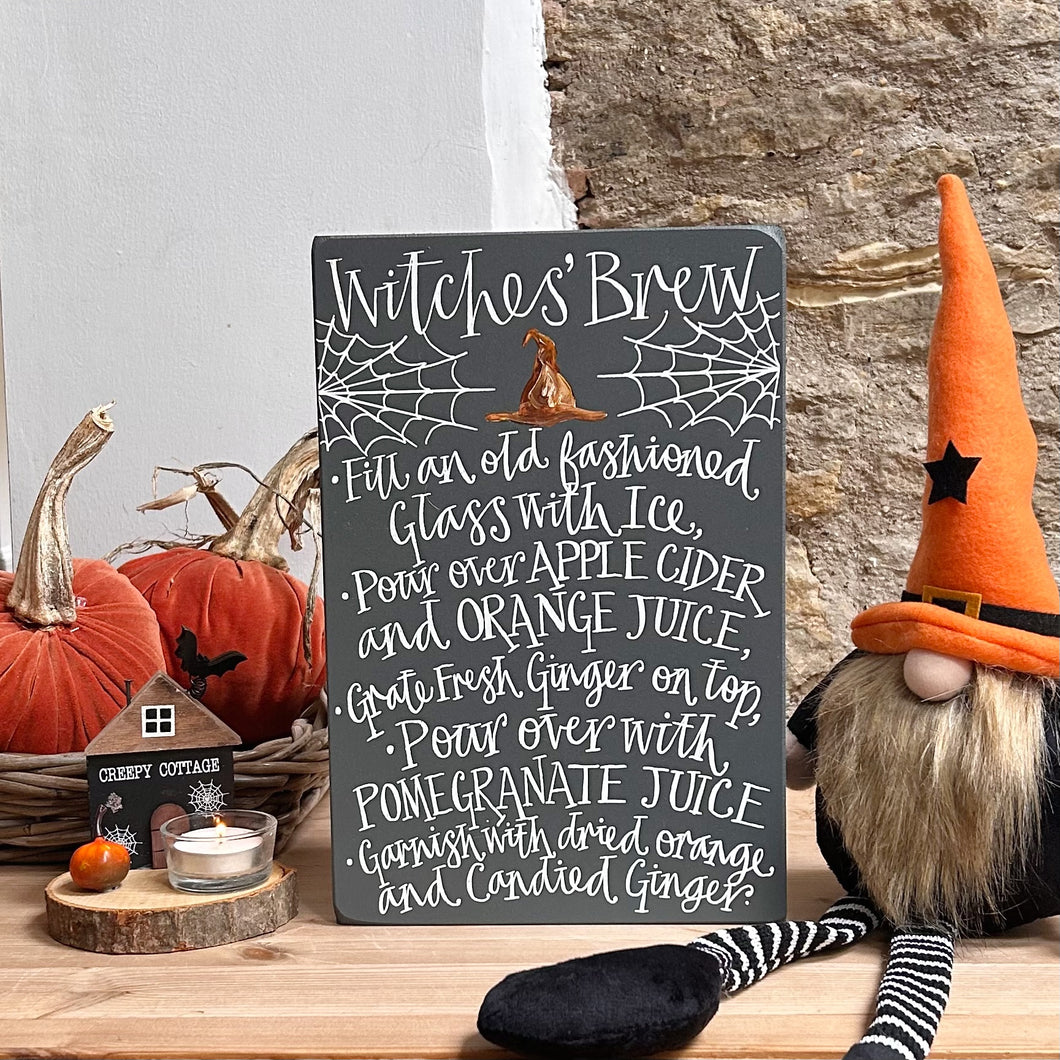 Witches' Brew
• Fill an old fashioned
Glass with Ice,
• Pour over APPLE CIDER,
and ORANGE JUICE,
• Grate Fresh Ginger on top,
• Pour over with
POMEGRANATE JUICE
• Garnish with dried orange
and Candied Ginger.
CREEPY COTTAGE